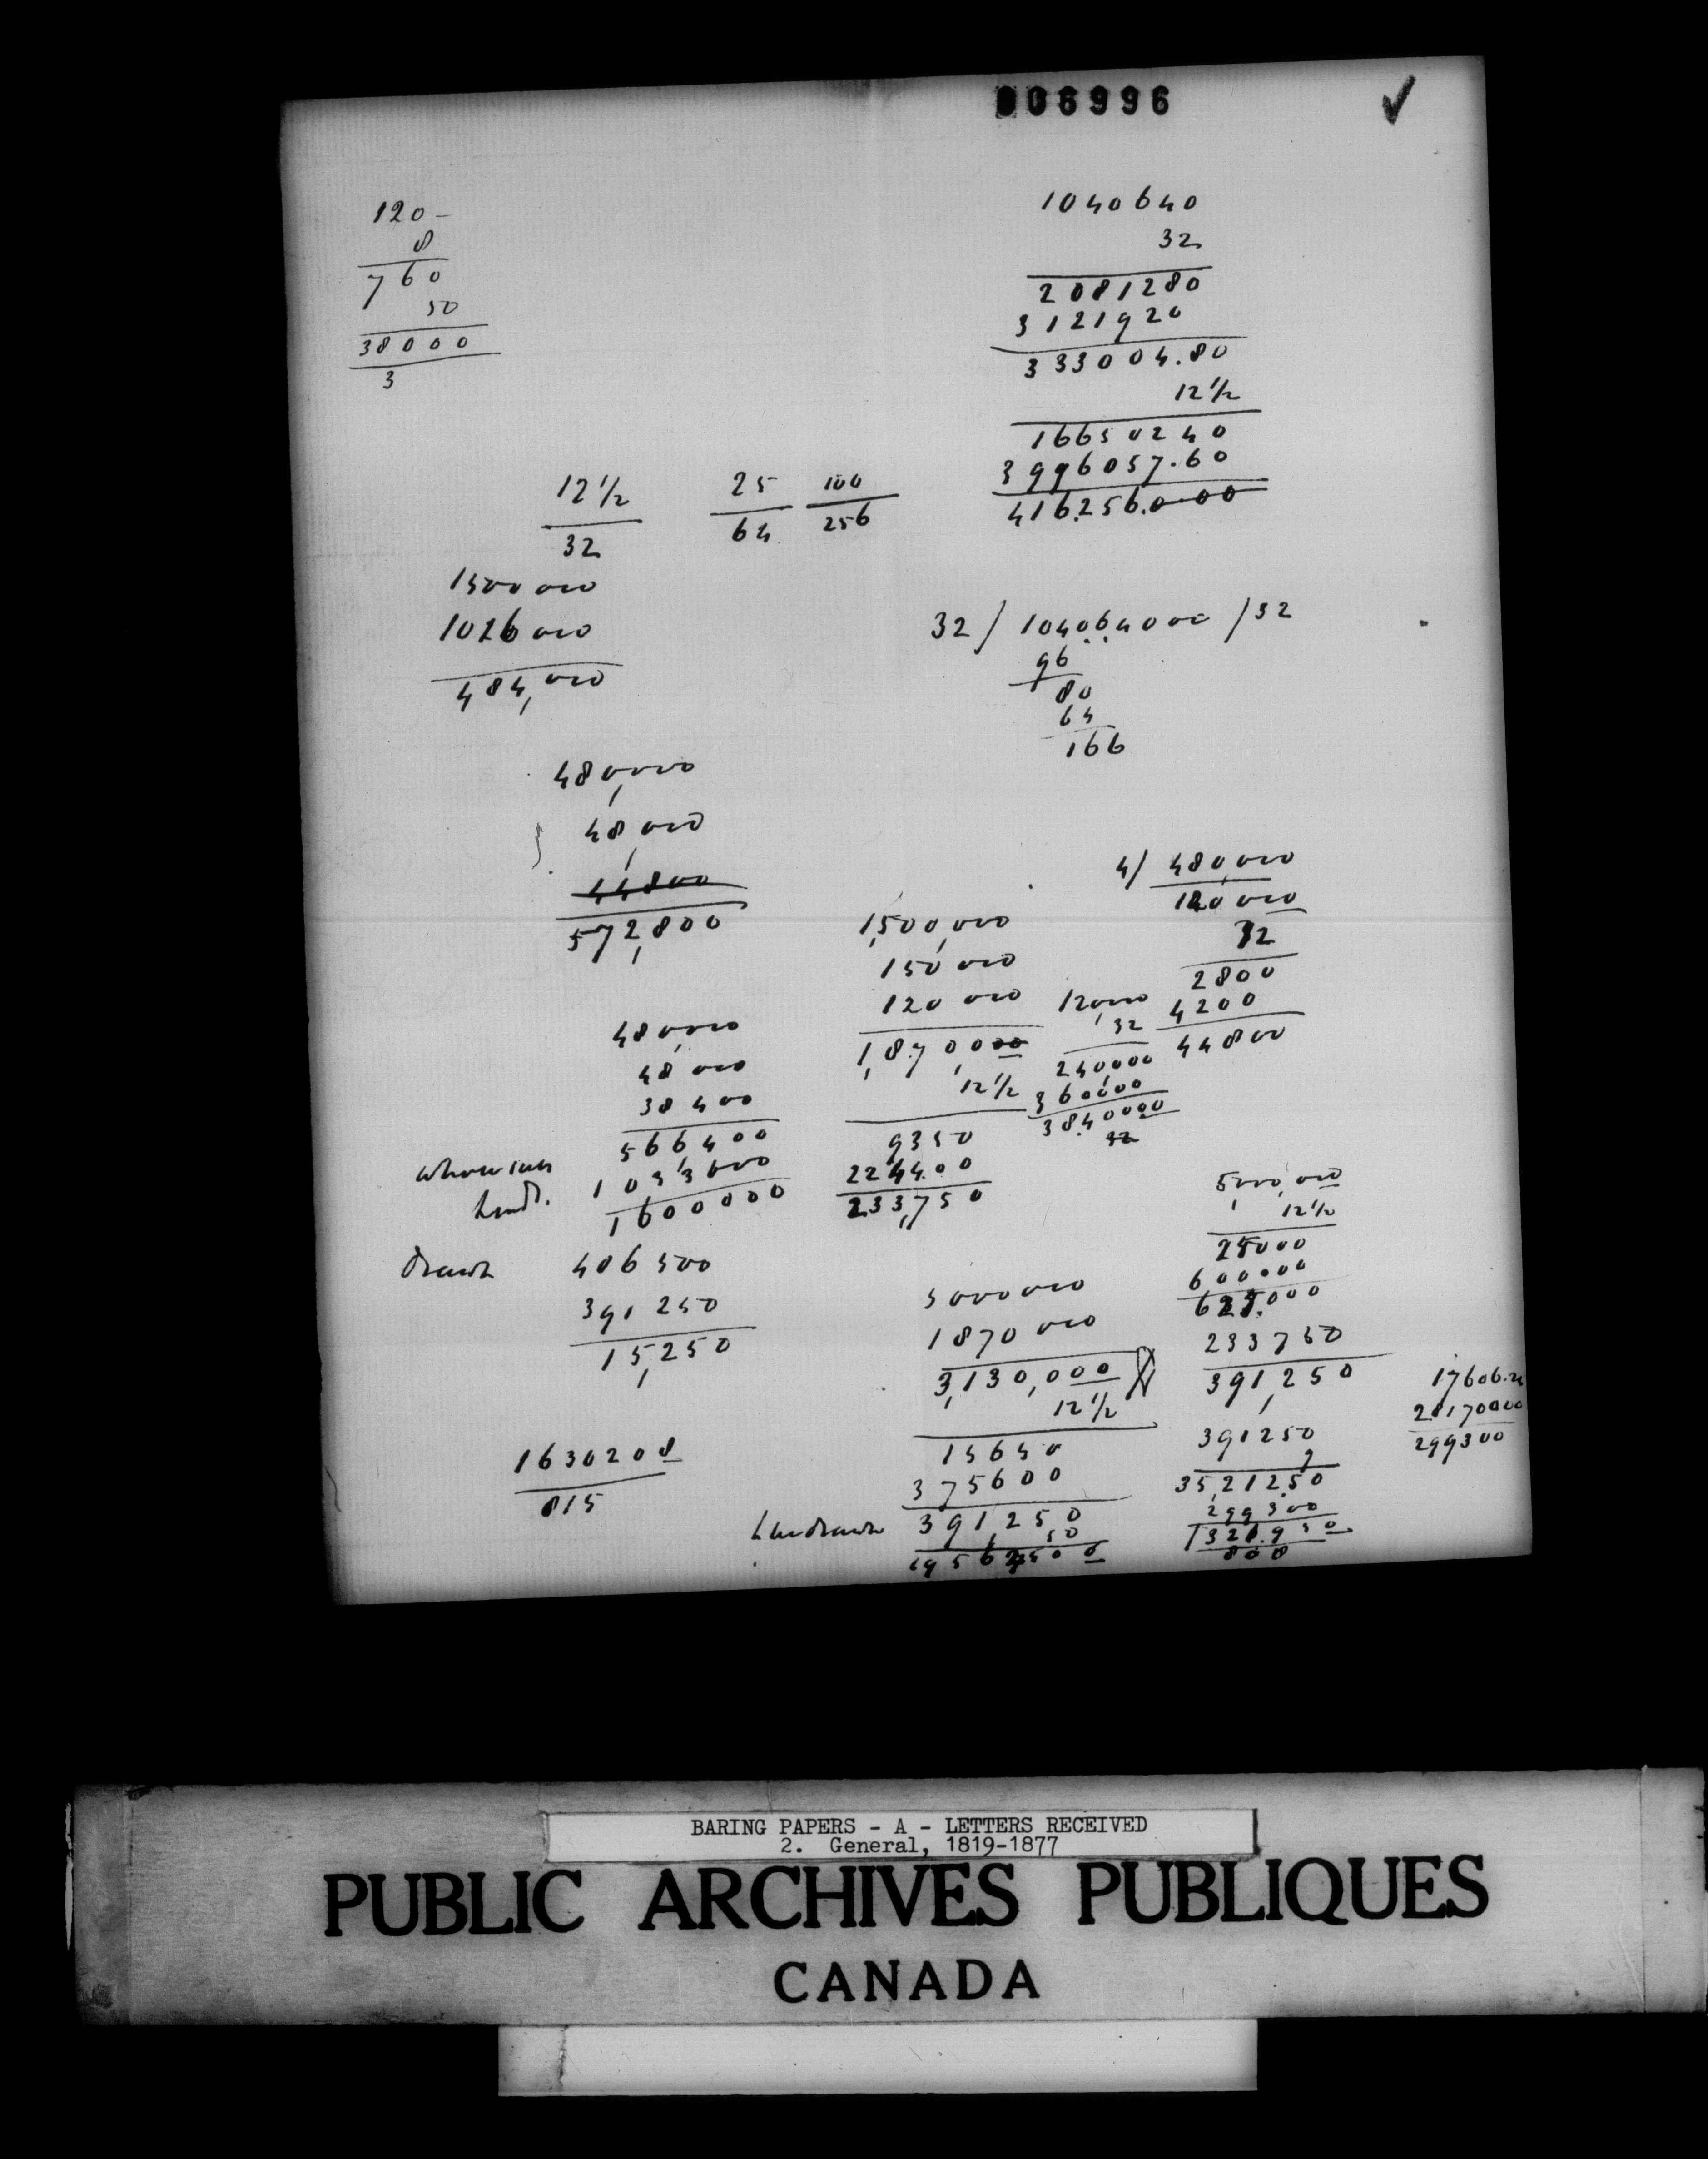 006996
120 -
8
760
50
38000
3
1040640
32
2081280
3121920
333004.80
12 1/2
16650240
3996057.60
416.256.0.00
12 1/2
32
25
64
100
256
1500 000
1026 000
484,000
32 / 104064000 / 32
96
80
64
166
480,000
48,000
44800
572,800
4/ 480,000
120 000
32
2800
4200
44800
1,500,000
150 000
120 000
1,870,000
12 1/2
9350
224400
233,750
12,000
32
240000
360000
3840000
32
480,000
48 000
38 400
566,400
1033600
1600000
drawn
406 500
391 250
15,250
5,000,000
12 1/2
25000
600000
625.000
233750
391,250
5000 000
1870 000
3,130,000
12 1/2
15650
375600
391,250
50
19562500
391250
9
35,212.50
299300
1321.950
800
17606.2
28170000
299300
1630208
815
BARING PAPERS - A - LETTERS RECEIVED
2. General, 1819-1877
PUBLIC ARCHIVES PUBLIQUES
CANADA